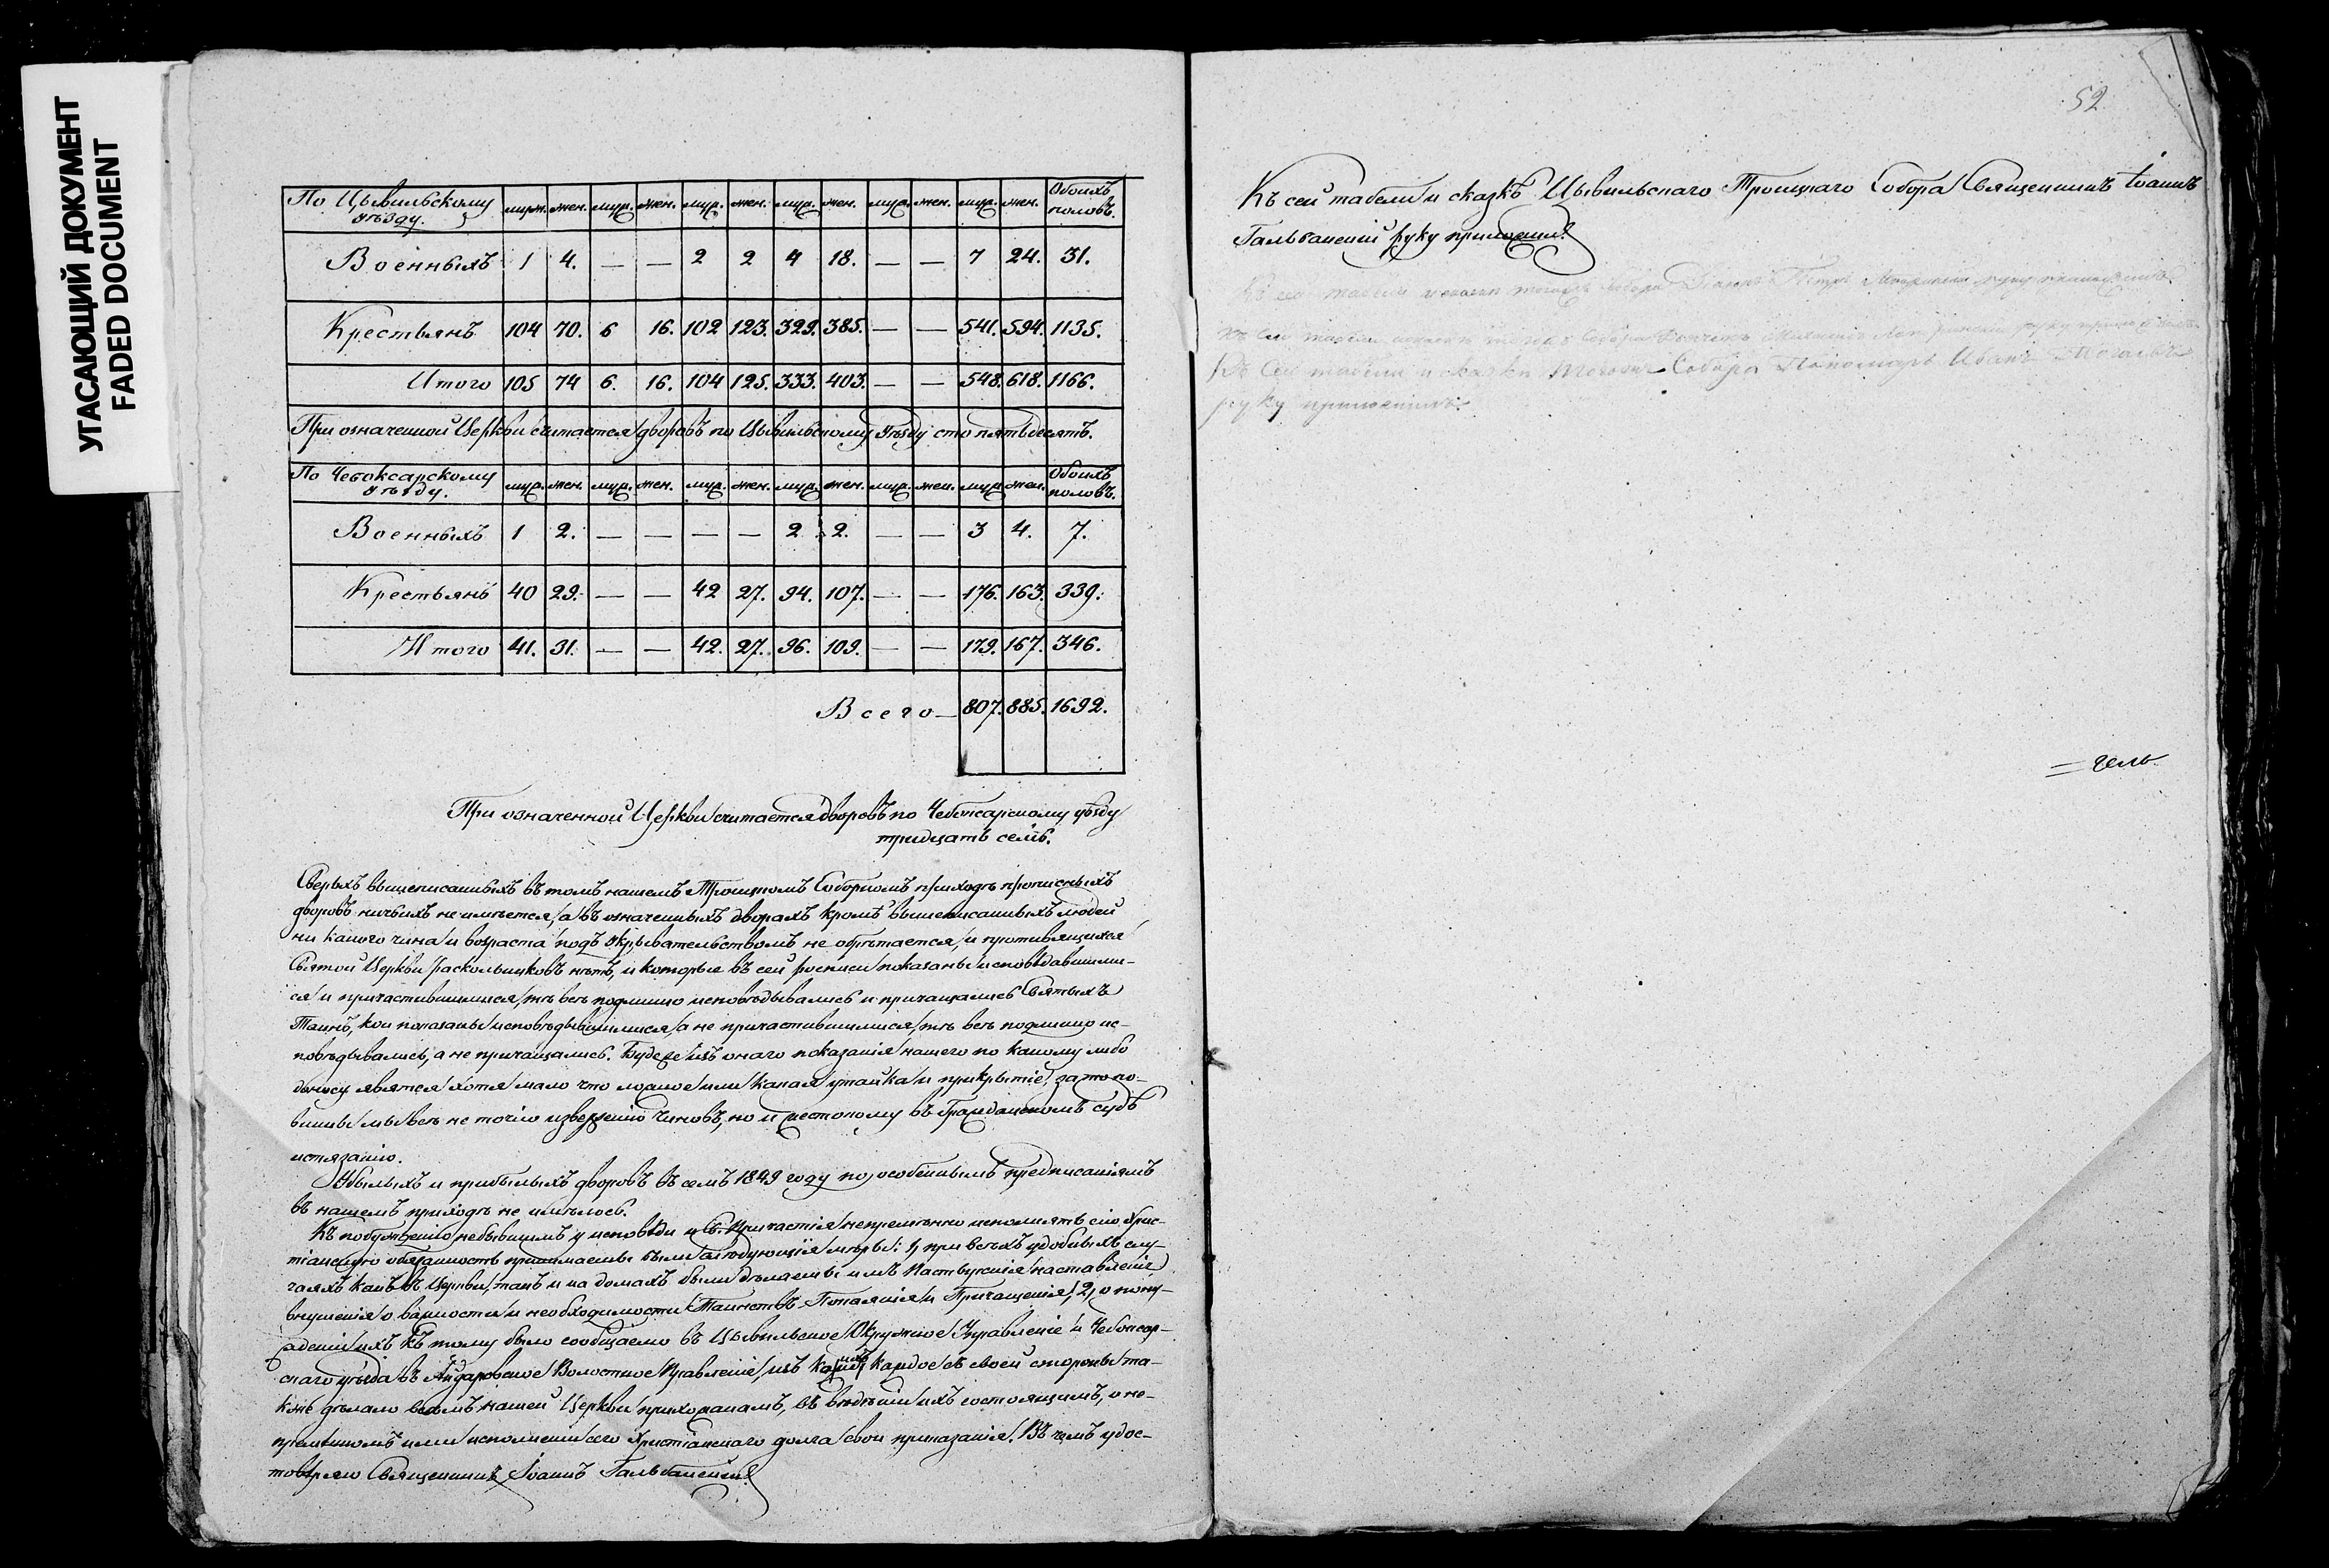 УГАСАЮЩИЙ ДОКУМЕНТ
FADED DOCUMENT
По Цывильскому уѣзду. муж. жен. муж. жен. муж. жен. муж. жен. муж. жен. муж. жен. Обоихъ половъ.
Военныхъ 1 4. — — 2 2 4 18. — — 7 24. 31.
Крестьянъ 104 70. 6 16. 102 123. 329. 385. — — 541. 594. 1135.
Итого 105 74 6. 16. 104 125. 333. 403. — — 548. 618. 1166.
При означенной Церкви считается дворовъ по Цывильскому уѣзду сто пятьдесятъ.
По Чебоксарскому уѣзду. муж. жен. муж. жен. муж. жен. муж. жен. муж. жен. муж. жен. Обоихъ половъ.
Военныхъ 1 2. — — — — 2 2. — — 3 4. 7.
Крестьянъ 40 29. — — 42 27. 94. 107. — — 176. 163. 339.
Итого 41. 31. — — 42. 27. 96. 109. — — 179. 167. 346.
Всего — 807. 885. 1692.
При означенной Церкви считается дворовъ по Чебоксарскому уѣзду
тридцать семь.
Сверхъ вышеписанныхъ въ томъ нашемъ Троицкомъ Соборномъ приходѣ прописныхъ
дворовъ ничьихъ не имѣется, а въ означенныхъ дворахъ кромѣ вышеписанныхъ людей
ни какого чина и возраста подъ укрывательствомъ не обрѣтается, и противящихся
Святой Церкви раскольниковъ нѣтъ, и которые въ сей росписи показаны исповѣдавшими-
ся и причастившимися, тѣ всѣ подлинно исповѣдывались и причащались Святыхъ
Таинъ, кои показаны исповѣдывавшимися, а не причастившимися, тѣ всѣ подлинно ис-
повѣдывались, а не причащались. Буде же изъ онаго показанія нашего по какому либо
доносу явится хотя мало что ложное или какая утайка и прикрытіе, за то по-
винны мы всѣ не точію изверженію чиновъ, но и жестокому въ Гражданскомъ судѣ
истязанію.
Убылыхъ и прибылыхъ дворовъ въ семъ 1849 году по особеннымъ предписаніямъ
въ нашемъ приходѣ не имѣлось.
Къ побужденію небывшимъ у исповѣди и Св. Причастія непремѣнно исполнять сію Хрис-
тіанскую обязанность принимаемы были слѣдующія мѣры: 1, при всѣхъ удобныхъ слу-
чаяхъ какъ въ Церкви, такъ и на домахъ были дѣлаемы имъ Пастырскія наставленія
внушенія о важности и необходимости Таинствъ Покаянія и Причащенія, 2, о пону-
жденіи ихъ къ тому было сообщаемо въ Цывильское Окружное Управленіе и Чебоксар-
скаго уѣзда въ Айдаровское Волостное Правленіе, изъ каждое съ своей стороны та-
кже дѣлало всѣмъ нашей Церкви прихожанамъ, въ вѣдѣніи ихъ состоящимъ, о не-
премѣнномъ ими исполненіи сего Христіанскаго долга свои приказанія. Въ чемъ удос-
товѣряю Священникъ Іоаннъ Гальбанскій
52
Къ сей табели и сказкѣ Цывильскаго Троицкаго Собора Священникъ Іоаннъ
Гальбанскій руку приложилъ
Къ сей табели и сказки тогожъ Собора Петръ руку приложилъ
Къ сей табели тогожъ Собора руку приложилъ
Къ сей табели и сказки тогожъ Собора Пономарь Иванъ
руку приложилъ